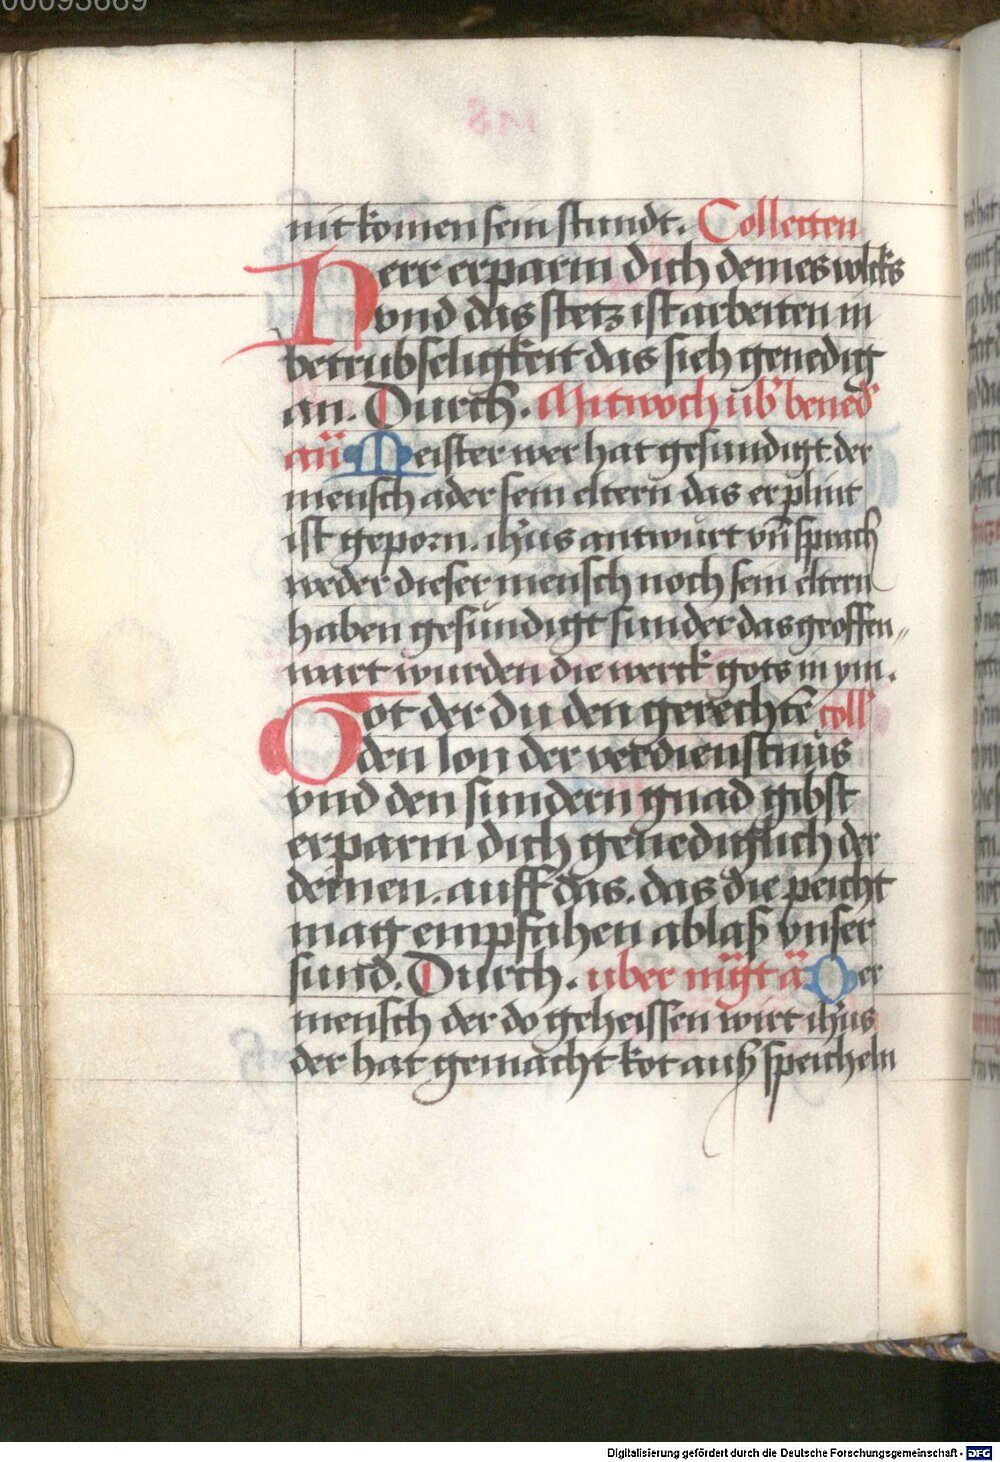 00093669
nit komen sein stundt. Collecten
Herr erparm dich deines volcks
vnd das stetz ist arbeiten in
betrubseligkeit das sieh genedig
an. Durch. Mitwoch ub' bened'
aū Meister wer hat gesundigt der
mensch ader sein eltern das er plint
ist geporn. ih'us antwurt vn̄ sprach
weder dieser mensch noch sein eltern
haben gesundigt sunder das geoffen„
wart wurden die werck gots in ym.
Got der du den gerechtē coll'
den lon der verdienstnus
vnd den sundern gnad gibst
erparm dich genediglich der
deinen. auff das. das die peicht
mag empfahen ablaß vnser
sund. Durch. uber mḡt ā Der
mensch der do geheissen wirt ih'us
der hat gemacht kot auß speicheln
Digitalisierung gefördert durch die Deutsche Forschungsgemeinschaft - DFG